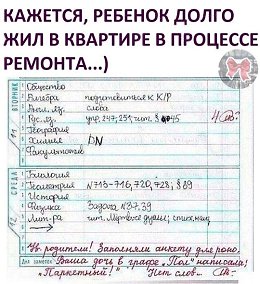 КАЖЕТСЯ, РЕБЕНОК ДОЛГО
ЖИЛ В КВАРТИРЕ В ПРОЦЕССЕ
РЕМОНТА...)
ВТОРНИК
11
Общество
Алгебра подготовиться к К/Р
Англ. яз. слова
Рус. яз. упр. 247; 251; §45
География
Химия DN
Факультатив
СРЕДА
12
Биология
Геометрия №713-716, 720, 728; §89
История
Физика Задача №37.39
Лит-ра чит. Мёртвые души; стих.
Ув. родители! Заполняли анкету для роно.
Ваша дочь в графе „Пол" написала:
„Паркетный!" Нет слов...